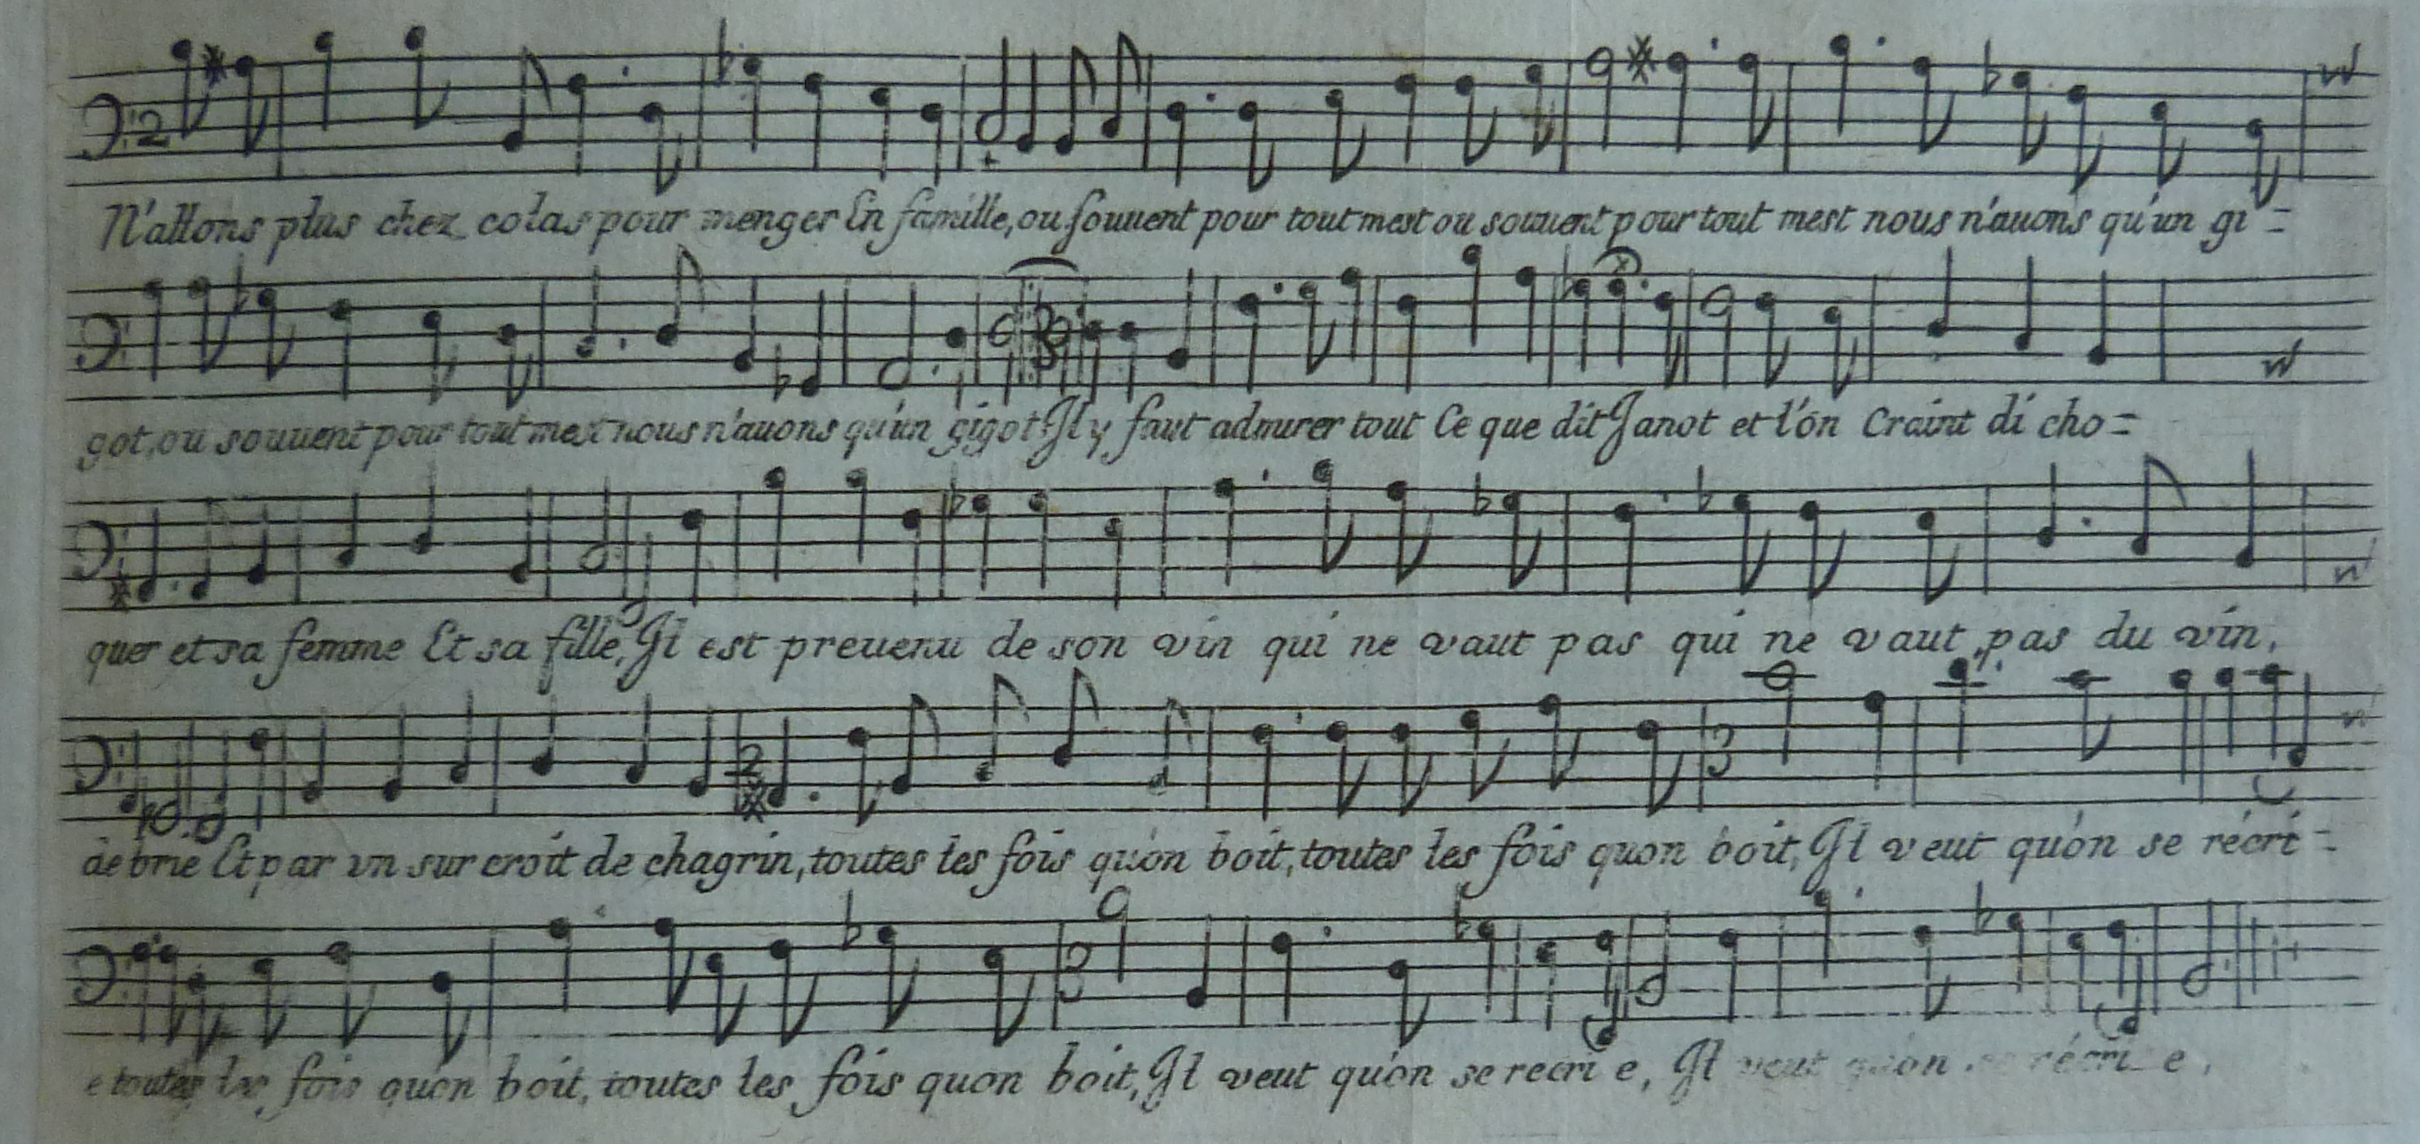 N'allons plus chez colas pour menger En famille, ou souuent pour tout mest ou souuent pour tout mest nous n'auons qu'un gi=
got, ou souuent pour tout mest nous n'auons qu'un gigot. Jl y faut admirer tout Ce que dit Janot et l'ón Craint di cho=
quer et sa femme Et sa fille, Jl est preuenu de son vin qui ne vaut pas qui ne vaut pas du vin,
de brie Et par vn sur croit de chagrin, toutes les fois qu'on boit, toutes les fois quon boit, Jl veut qu'on se récri=
e toutes les fois qu'on boit, toutes les fois quon boit, Jl veut qu'on se recri e, Jl veut qu'on se récri e,